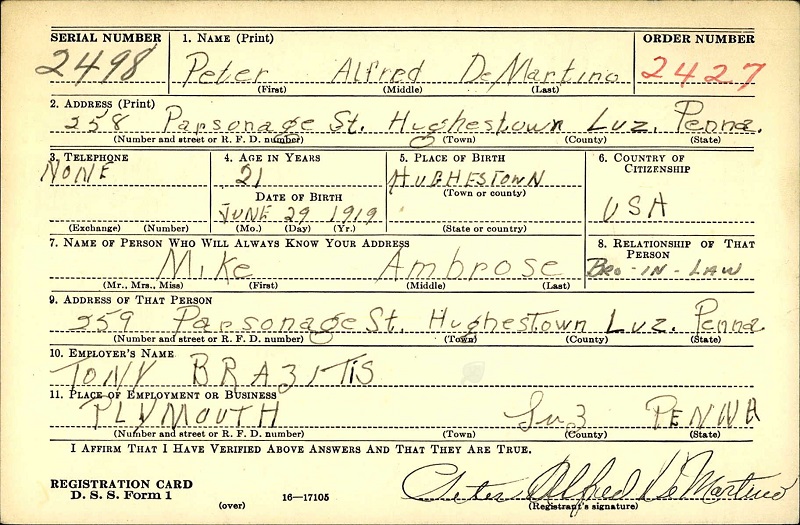 SERIAL NUMBER 1. NAME (Print) ORDER NUMBER
2498 Peter Alfred DeMartino 2427
(First) (Middle) (Last)
2. ADDRESS (Print)
258 Parsonage St. Hughestown Luz. Penna.
(Number and street or R. F. D. number) (Town) (County) (State)
3. TELEPHONE 4. AGE IN YEARS 5. PLACE OF BIRTH 6. COUNTRY OF CITIZENSHIP
NONE 21 HUGHESTOWN
(Town or county)
DATE OF BIRTH
JUNE 29 1919 USA
(Exchange) (Number) (Mo.) (Day) (Yr.) (State or country)
7. NAME OF PERSON WHO WILL ALWAYS KNOW YOUR ADDRESS 8. RELATIONSHIP OF THAT PERSON
Mike Ambrose BRO-IN-LAW
(Mr., Mrs., Miss) (First) (Middle) (Last)
9. ADDRESS OF THAT PERSON
259 Parsonage St. Hughestown Luz. Penna
(Number and street or R. F. D. number) (Town) (County) (State)
10. EMPLOYER'S NAME
TONY BRAZITIS
11. PLACE OF EMPLOYMENT OR BUSINESS
PLYMOUTH Luz PENNA
(Number and street or R. F. D. number) (Town) (County) (State)
I AFFIRM THAT I HAVE VERIFIED ABOVE ANSWERS AND THAT THEY ARE TRUE.
REGISTRATION CARD
D. S. S. Form 1 (over) 16—17105
Peter Alfred DeMartino
(Registrant's signature)